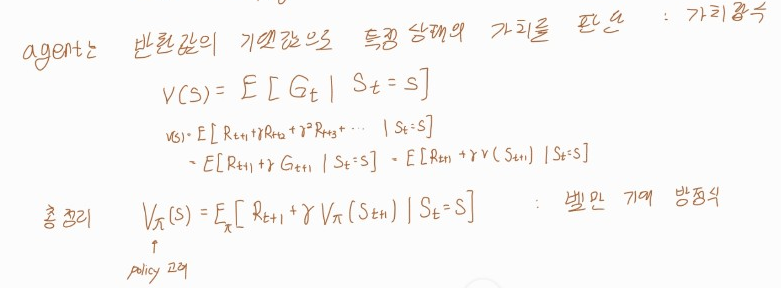 agent는 반환값의 기댓값으로 특정 상태의 가치를 판단 : 가치함수
V(S) = E [ G_t | S_t = s ]
v(s) = E [ R_{t+1} + γR_{t+2} + γ²R_{t+3} + ⋯ | S_t = s ]
= E [ R_{t+1} + γ G_{t+1} | S_t = s ] = E [ R_{t+1} + γ v ( S_{t+1} ) | S_t = s ]
총정리 V_π(s) = E_π [ R_{t+1} + γ V_π (S_{t+1}) | S_t = s ] : 벨만 기대 방정식
↑
policy 고려